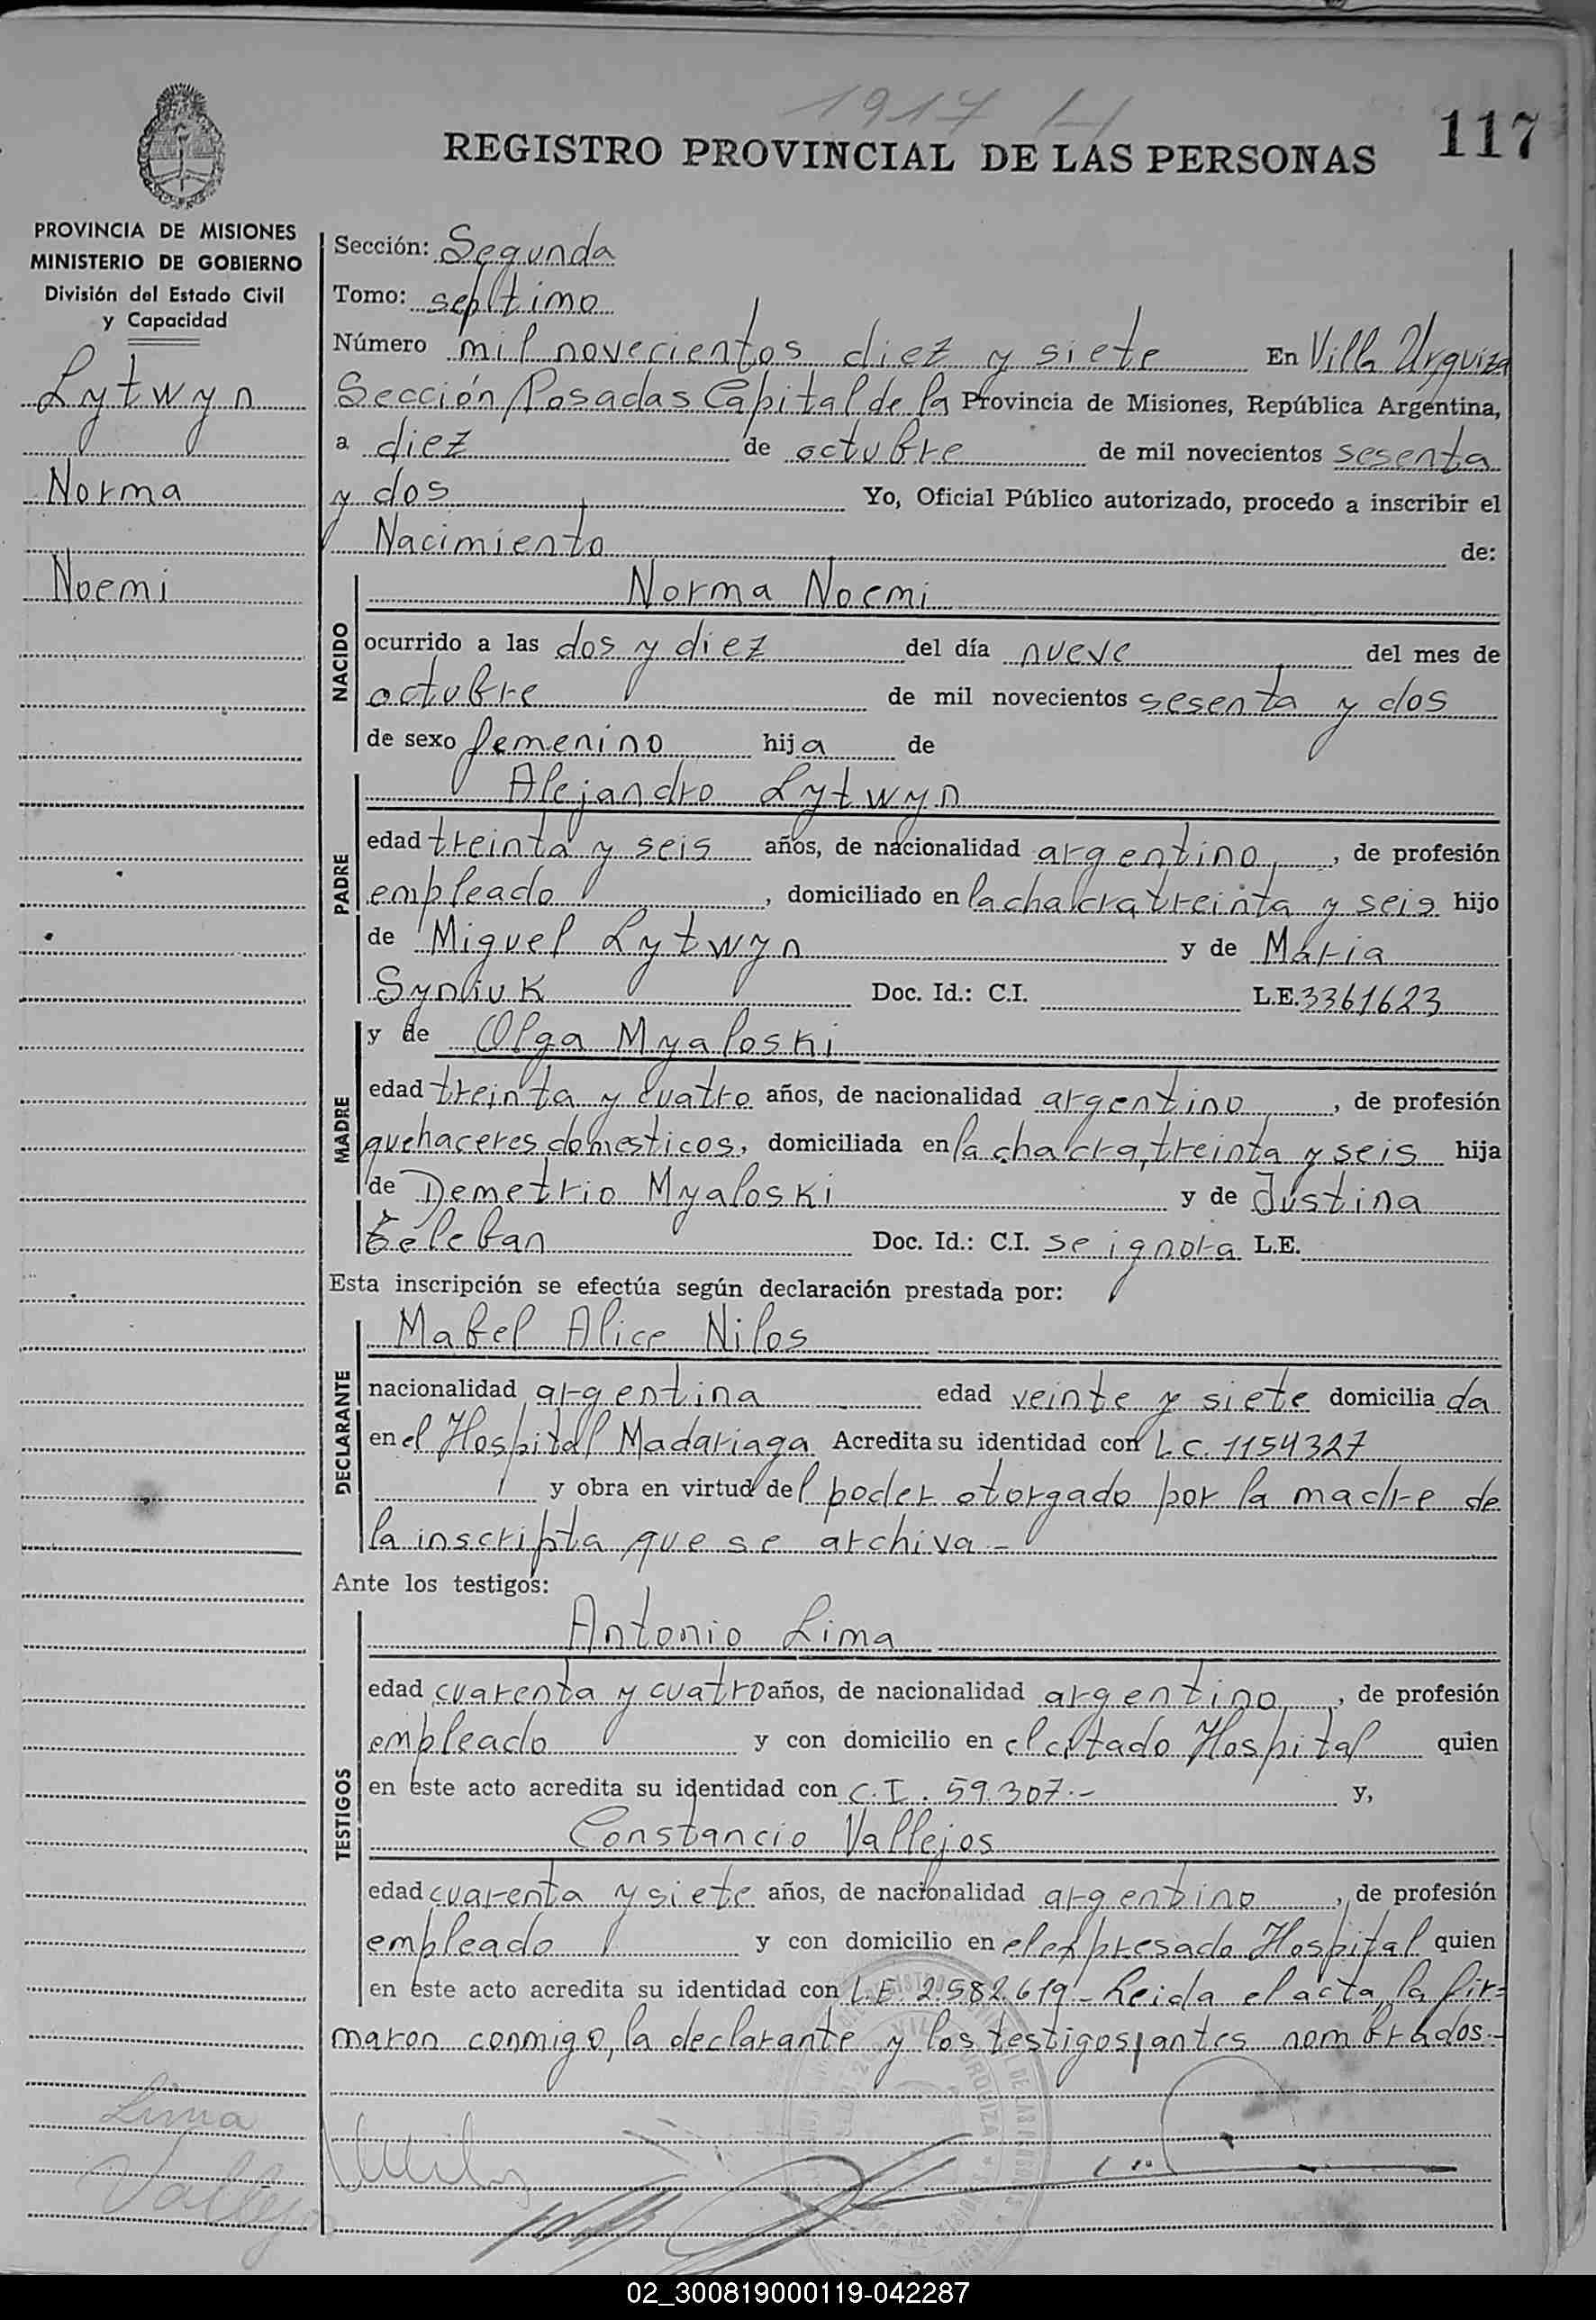 1917 H
117
REGISTRO PROVINCIAL DE LAS PERSONAS
PROVINCIA DE MISIONES
MINISTERIO DE GOBIERNO
División del Estado Civil
y Capacidad
Lytwyn
Norma
Noemi
Sección: Segunda
Tomo: septimo
Número mil novecientos diez y siete En Villa Urquiza
Sección Posadas Capital de la Provincia de Misiones, República Argentina,
a diez de octubre de mil novecientos sesenta
y dos Yo, Oficial Público autorizado, procedo a inscribir el
Nacimiento de:
NACIDO
Norma Noemi
ocurrido a las dos y diez del día nueve del mes de
octubre de mil novecientos sesenta y dos
de sexo femenino hija de
PADRE
Alejandro Lytwyn
edad treinta y seis años, de nacionalidad argentino, de profesión
empleado, domiciliado en la chacra treinta y seis hijo
de Miguel Lytwyn y de Maria
Syniuk Doc. Id.: C.I. L.E. 3361623
MADRE
y de Olga Myaloski
edad treinta y cuatro años, de nacionalidad argentino, de profesión
quehaceres domesticos, domiciliada en la chacra, treinta y seis hija
de Demetrio Myaloski y de Justina
Doc. Id.: C.I. se ignora L.E.
Esta inscripción se efectúa según declaración prestada por:
DECLARANTE
Mabel Alice Nilos
nacionalidad argentina edad veinte y siete domiciliada
en el Hospital Madariaga Acredita su identidad con L.C. 1154327
y obra en virtud del poder otorgado por la madre de
la inscripta que se archiva.-
Ante los testigos:
TESTIGOS
Antonio Lima
edad cuarenta y cuatro años, de nacionalidad argentino, de profesión
empleado y con domicilio en el citado Hospital quien
en este acto acredita su identidad con C.I. 59.307.- y,
Constancio Vallejos
edad cuarenta y siete años, de nacionalidad argentino, de profesión
empleado y con domicilio en el expresado Hospital quien
en este acto acredita su identidad con L.E. 2.582.619.- Leida el acta, la fir=
maron conmigo, la declarante y los testigos antes nombrados.-
Lima
Vallejo
02_300819000119-042287